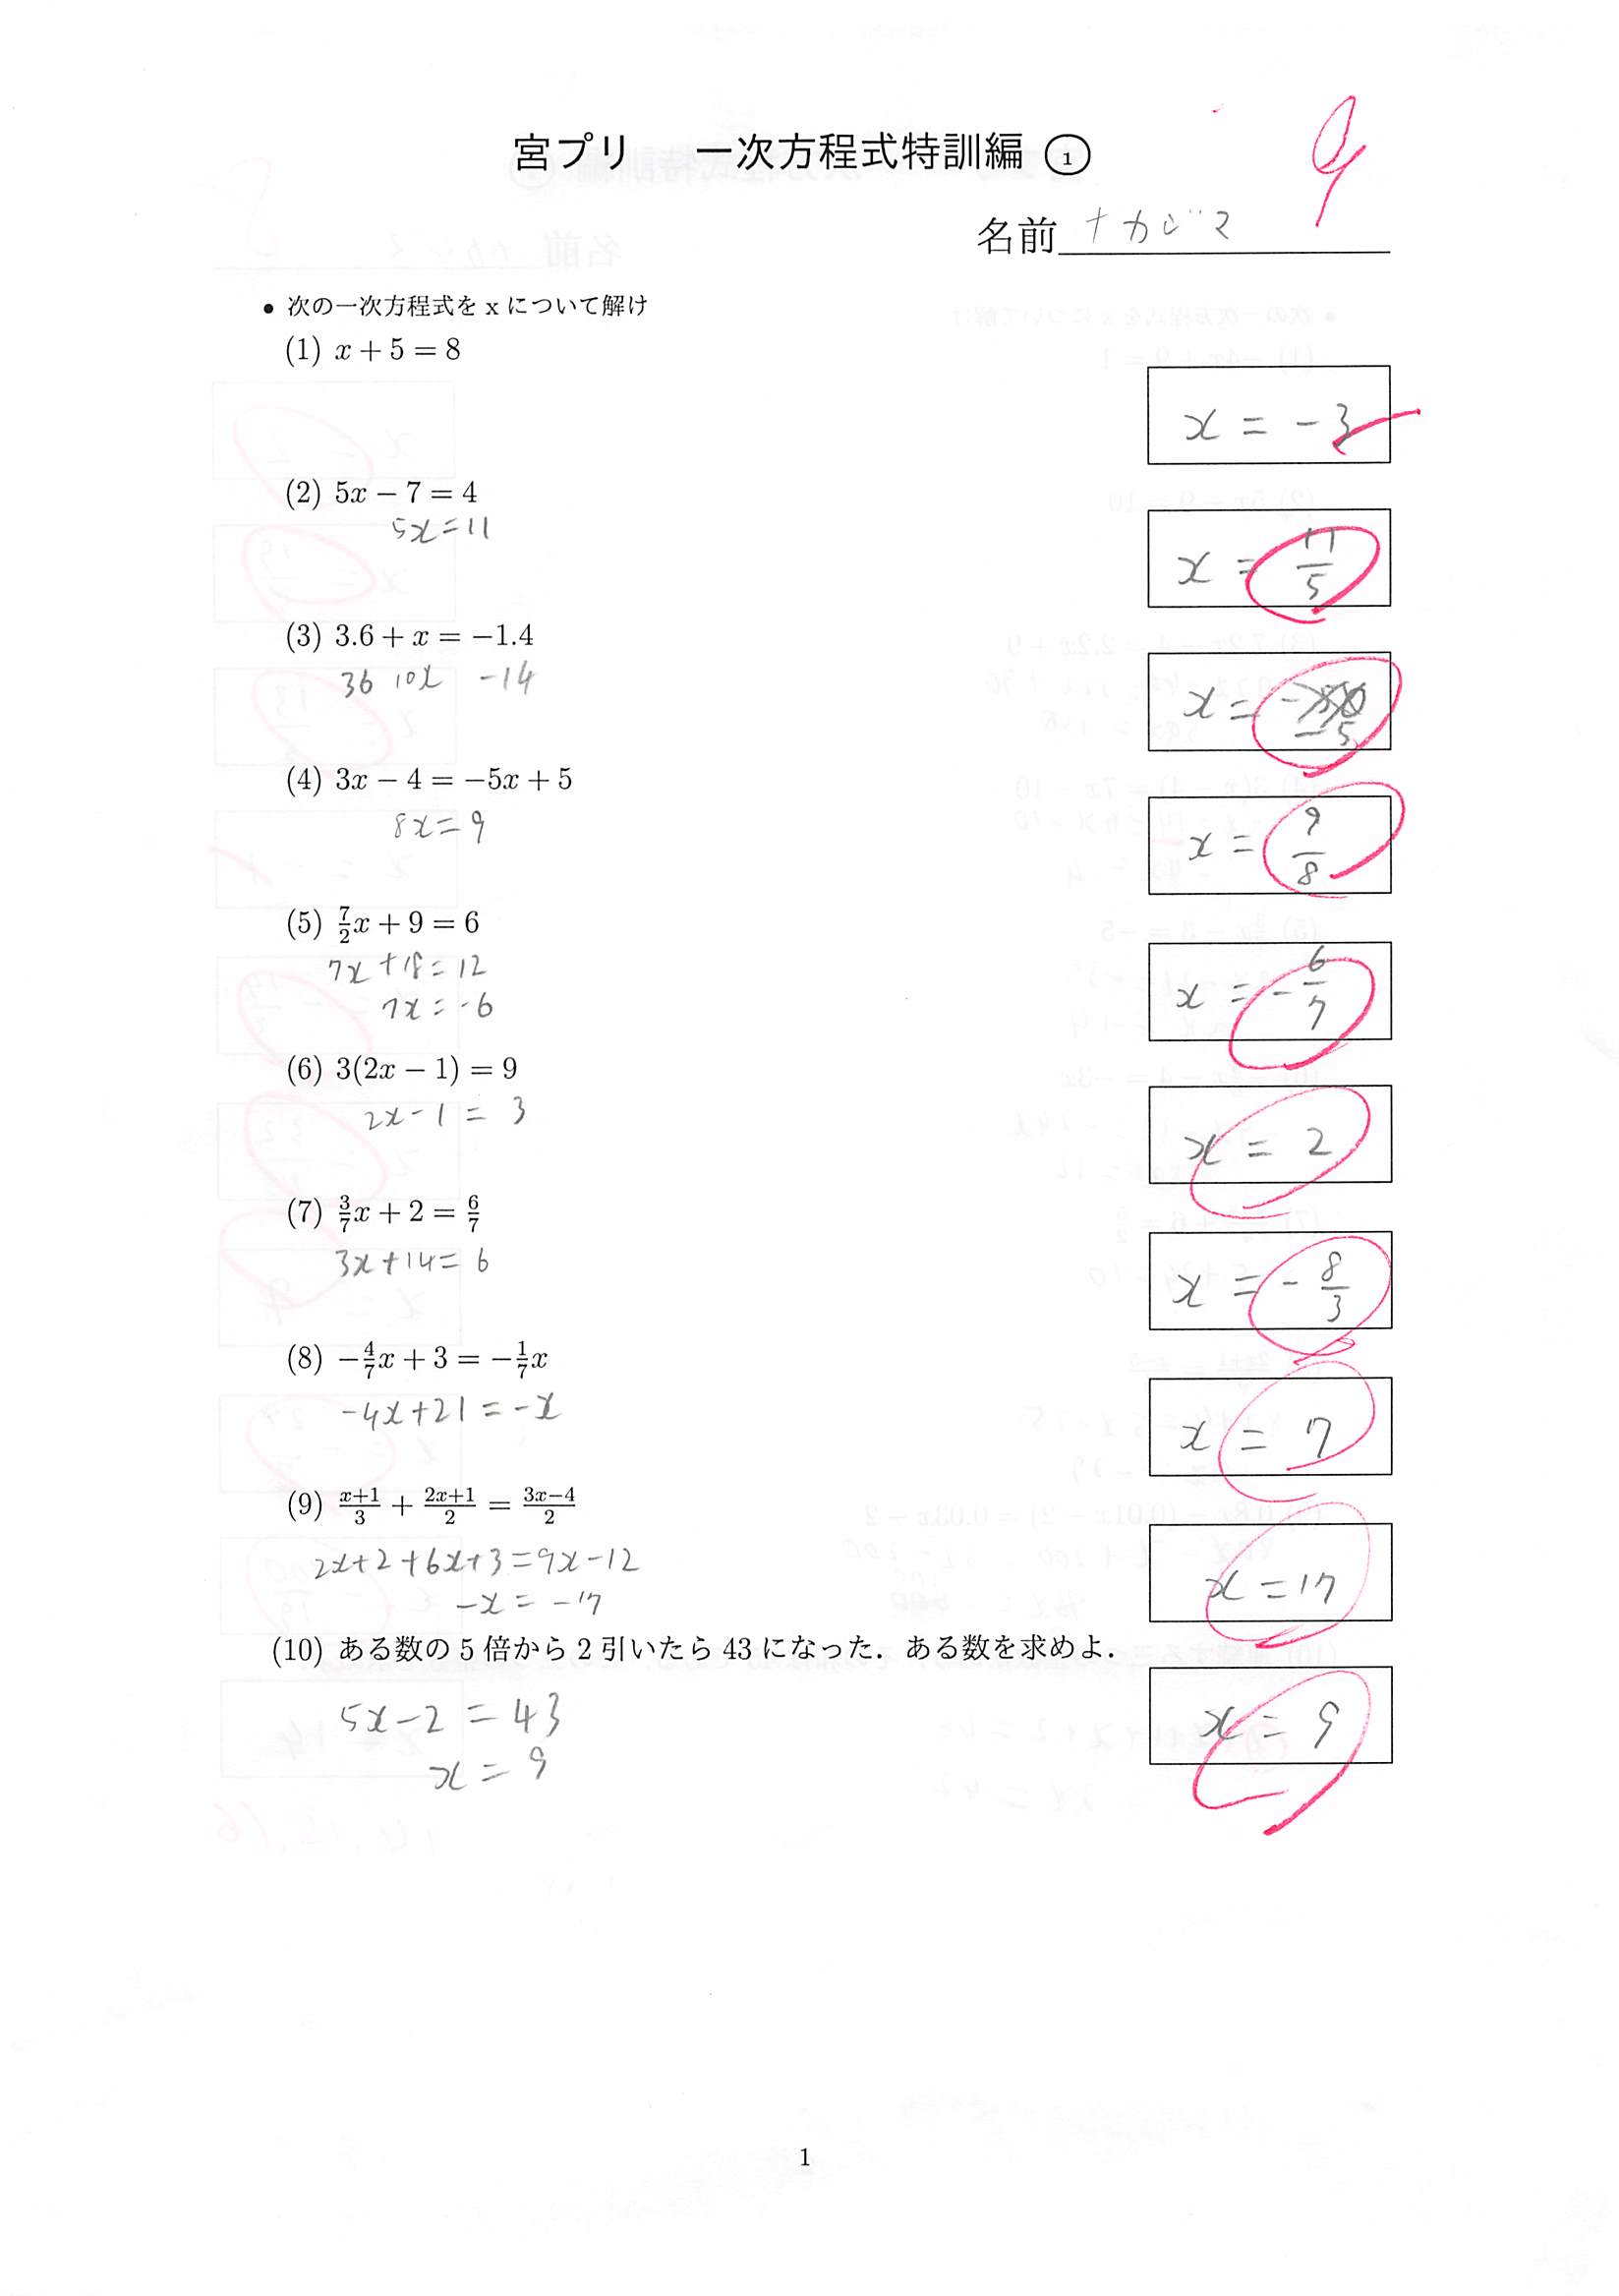 宮プリ 一次方程式特訓編 ①
9
名前 ナカジマ
• 次の一次方程式を x について解け
(1) x + 5 = 8
x = -3
(2) 5x − 7 = 4
5x = 11
x = 11/5
(3) 3.6 + x = −1.4
36 10x -14
x = -5
(4) 3x − 4 = −5x + 5
8x = 9
x = 9/8
(5) 7/2 x + 9 = 6
7x + 18 = 12
7x = -6
x = - 6/7
(6) 3(2x − 1) = 9
2x - 1 = 3
x = 2
(7) 3/7 x + 2 = 6/7
3x + 14 = 6
x = - 8/3
(8) −4/7 x + 3 = −1/7 x
-4x + 21 = -x
x = 7
(9) (x+1)/3 + (2x+1)/2 = (3x−4)/2
2x + 2 + 6x + 3 = 9x - 12
-x = -17
x = 17
(10) ある数の 5 倍から 2 引いたら 43 になった．ある数を求めよ．
5x - 2 = 43
x = 9
x = 9
1